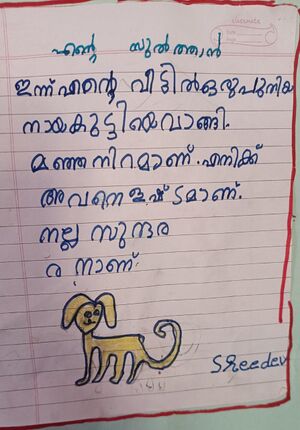 എന്റെ സുൽത്താൻ
ഇന്ന് എന്റെ വീട്ടിൽ ഒരു പുതിയ
നായകുട്ടിയെ വാങ്ങി.
മഞ്ഞനിറമാണ്. എനിക്ക്
അവനെ ഇഷ്ടമാണ്.
നല്ല സുന്ദര
നാണ്.
Sreedev
classmate